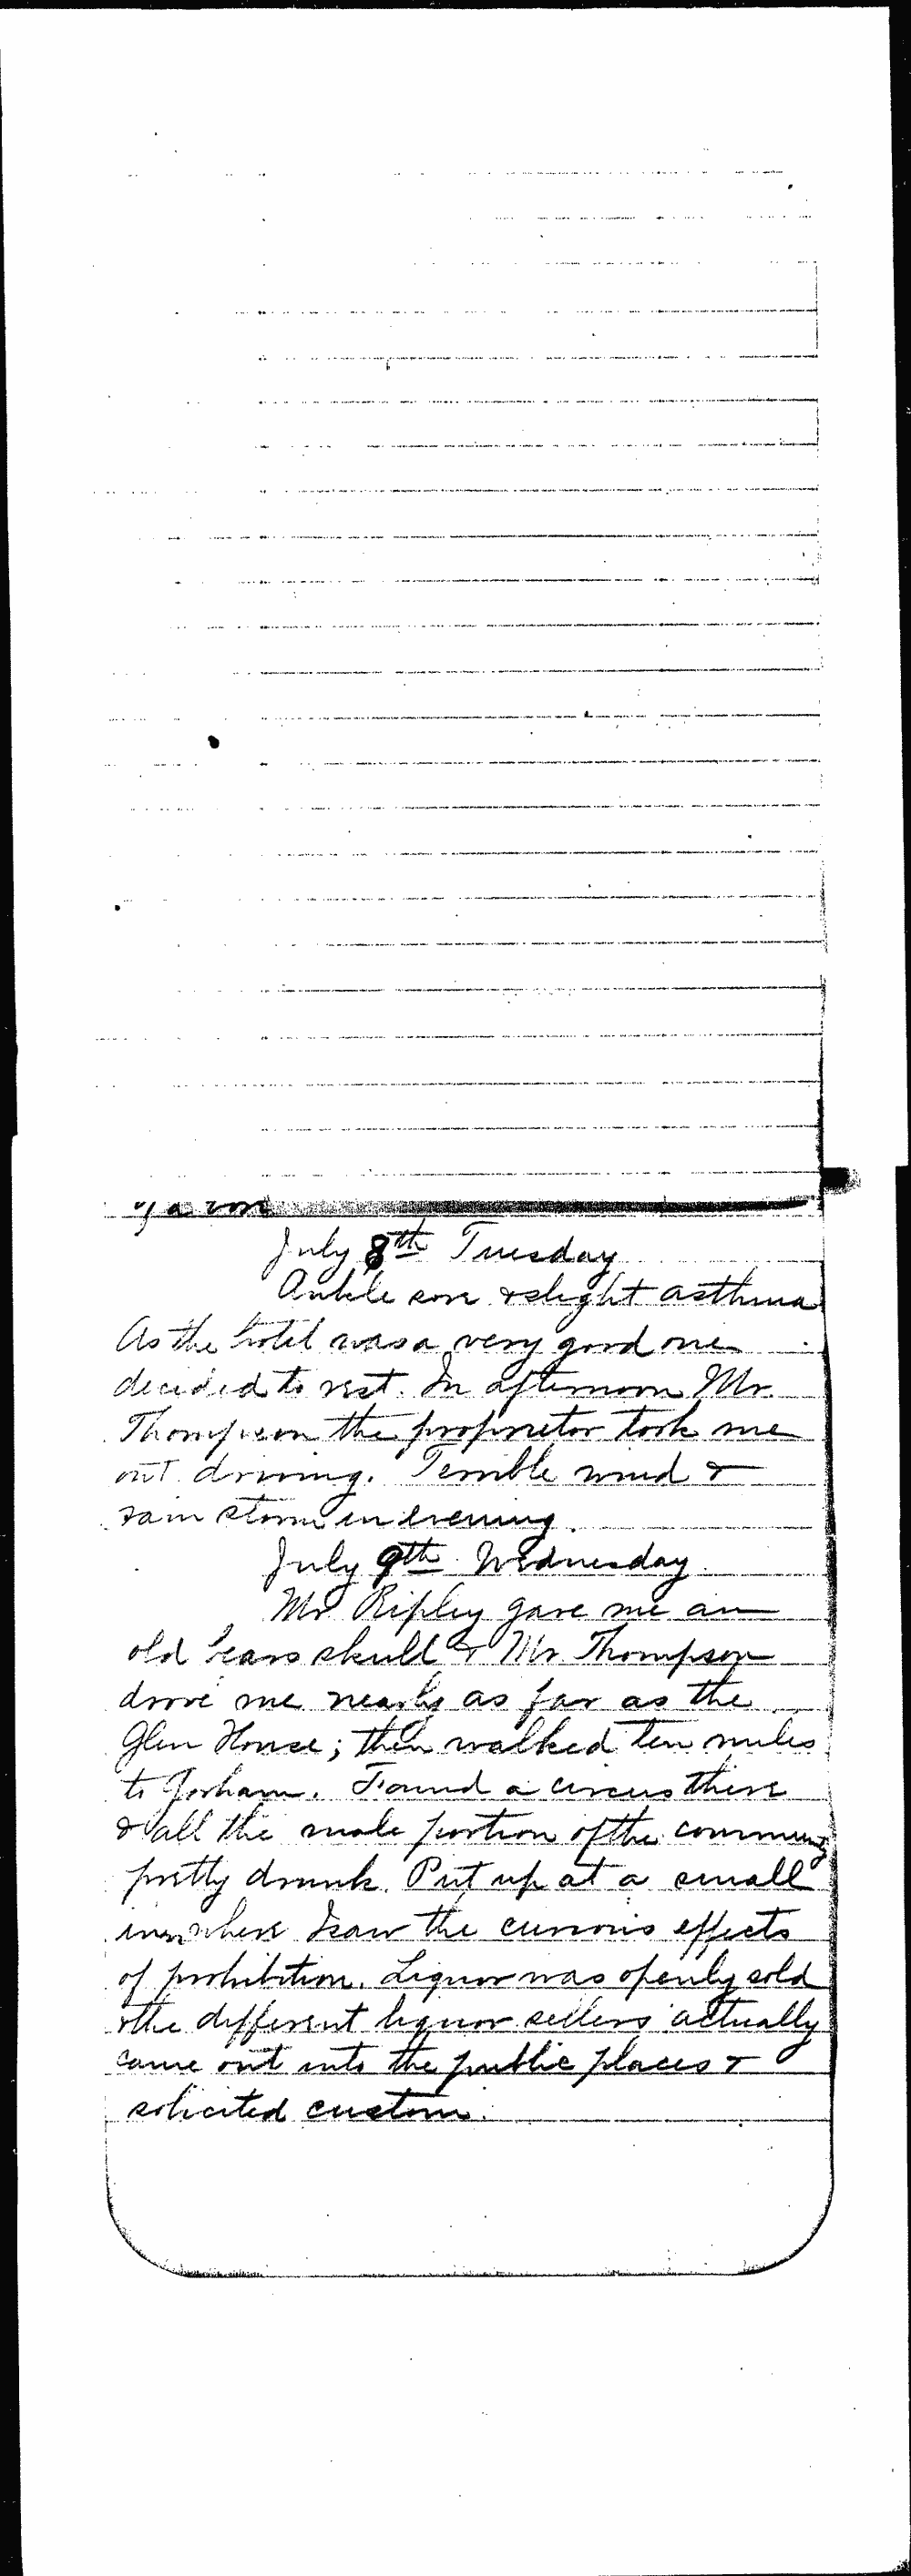 July 8th Tuesday
Ankle sore & slight asthma
As the hotel was a very good one
decided to rest. In afternoon Mr.
Thompson the proprietor took me
out driving. Terrible wind &
rain storm in evening.
July 9th Wednesday.
Mr Ripley gave me an
old bears skull & Mr. Thompson
drove me nearly as far as the
Glen House; then walked ten miles
to Gorham. Found a circus there
& all the male portion of the community
pretty drunk. Put up at a small
inn where I saw the curious effects
of prohibition. Liquor was openly sold
& the different liquor sellers actually
came out into the public places &
solicited custom.